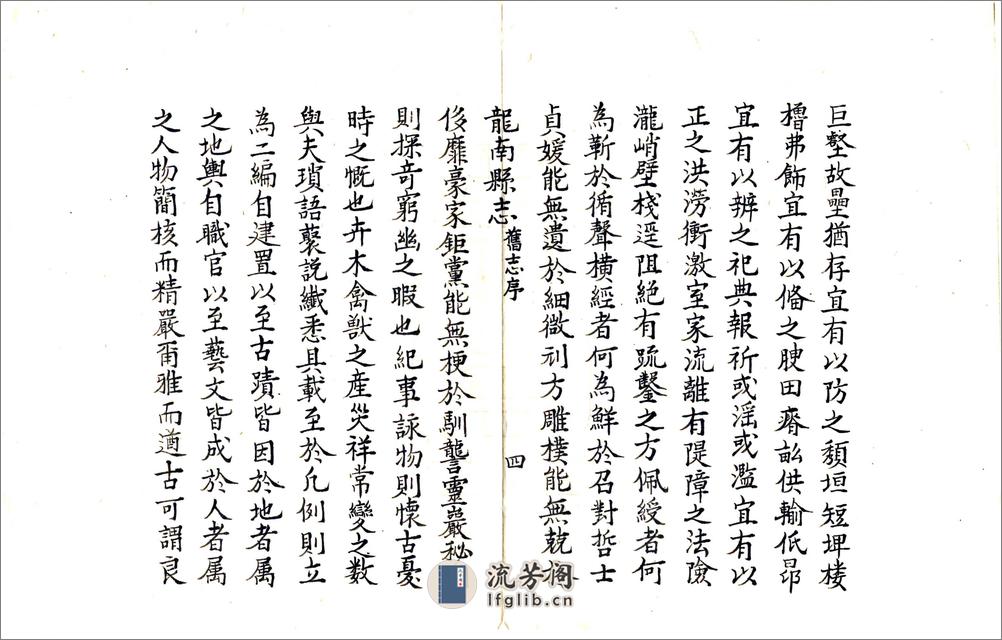 巨壑故壘猶存宜有以防之頹垣短埤楼
櫓弗飾宜有以偹之腴田瘠畝供輸低昂
宜有以辨之祀典報祈或滛或濫宜有以
正之洪澇衝激室家流離有隄障之法險
瀧峭壁棧逕阻絕有疏鑿之方佩綬者何
為靳於循聲橫經者何為鮮於召對哲士
貞媛能無遺於細微刓方雕樸能無競於
龍南縣志 舊志序 四
侈靡豪家鉅黨能無梗於馴讋靈巖秘
則探奇窮幽之暇也紀事詠物則懷古憂
時之慨也卉木禽獸之産災祥常變之数
與夫瑣語褻説纖悉具載至於凡例則立
為二編自建置以至古蹟皆因於地者属
之地輿自職官以至藝文皆成於人者属
之人物簡核而精嚴爾雅而遒古可謂良
流芳阁
lfglib.cn